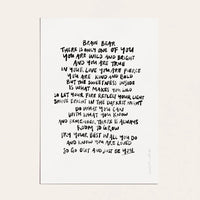 BRAVE BEAR
THERE IS ONLY ONE OF YOU
YOU ARE WILD AND BRIGHT
AND YOU ARE TRUE
IN YOUR LOVE YOU ARE FIERCE
YOU ARE KIND AND BOLD
BUT THE SWEETNESS INSIDE
IS WHAT MAKES YOU
SO LET YOUR FIRE REFLECT YOUR LIGHT
SHINE BRIGHT IN THE DARKEST NIGHT
DO WHAT YOU CAN
WITH WHAT YOU KNOW
AND REMEMBER, THERE IS ALWAYS
ROOM TO GROW
TRY YOUR BEST IN ALL YOU DO
AND KNOW YOU ARE LOVED
SO GO OUT AND JUST BE YOU.